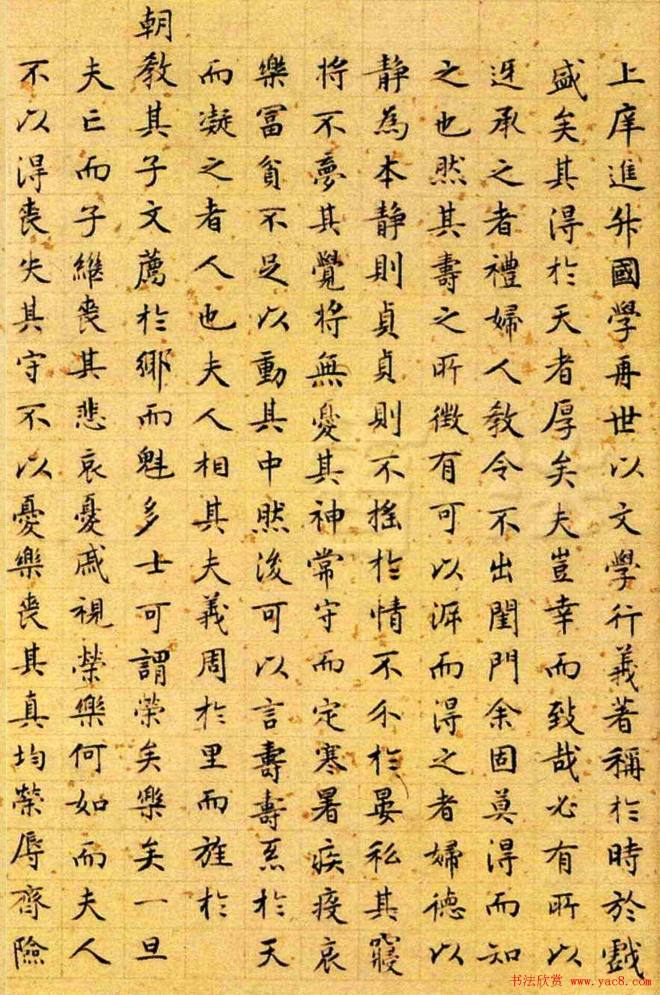 上庠進升國學再世以文學行義著稱於時於戲
盛矣其得於天者厚矣夫豈幸而致哉必有所以
迓承之者禮婦人教令不出閨門余固莫得而知
之也然其壽之所徵有可以沠而得之者婦德以
静為本静則貞貞則不搖於情不尒於晏私其寢
将不夢其覺将無憂其神常守而定寒暑疾疫哀
樂冨貧不足以動其中然後可以言壽壽系於天
而凝之者人也夫人相其夫義周於里而旌於
朝教其子文薦於鄉而魁多士可謂榮矣樂矣一旦
夫亡而子繼喪其悲哀憂戚視榮樂何如而夫人
不以得喪失其守不以憂樂喪其真均榮辱齊險
书法欣赏 www.yac8.com